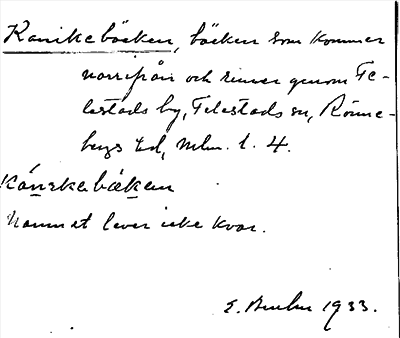 Kanikebäcken, bäcken som kommer
norrifrån och rinner genom Fe-
lestads by, Felestads sn, Rönne-
bergs hd, Mlm. l. 4.
Kánskebäcken
Namnet lever icke kvar.
E. 1933.